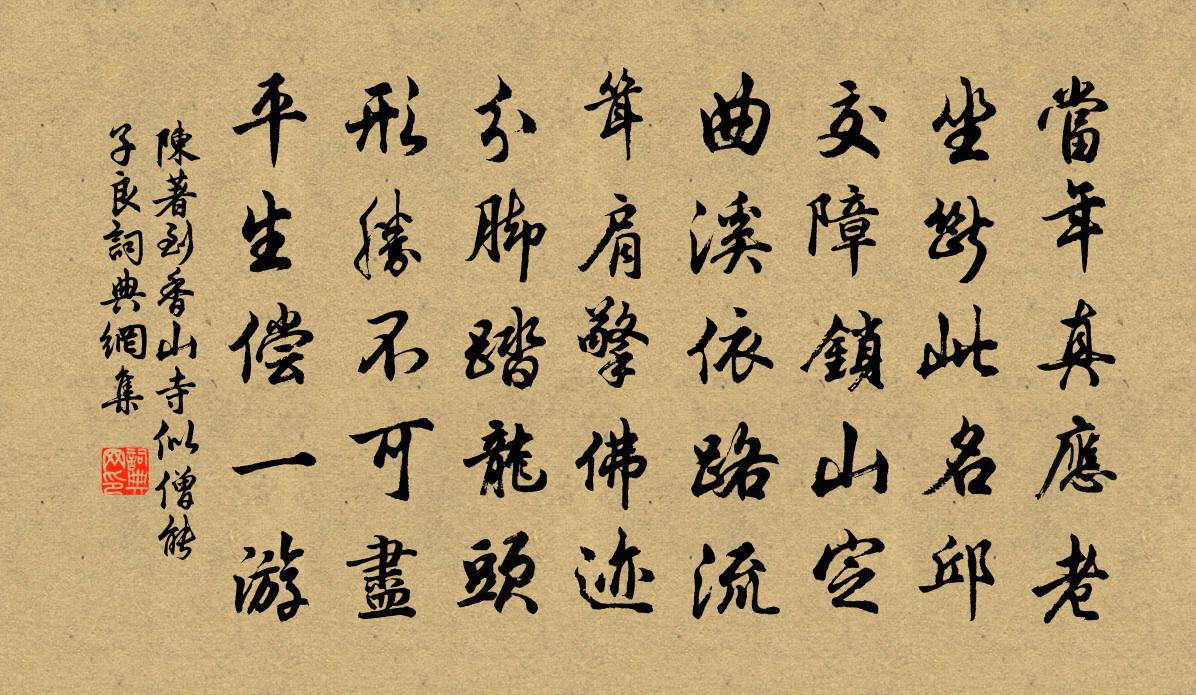 當年真應老
坐斷此名邱
交障鎖山定
曲溪依路流
聳肩擎佛迹
分脚踏龍頭
形勝不可盡
平生偿一游
陳著到香山寺似僧能
子良詞典網集
詞典網印